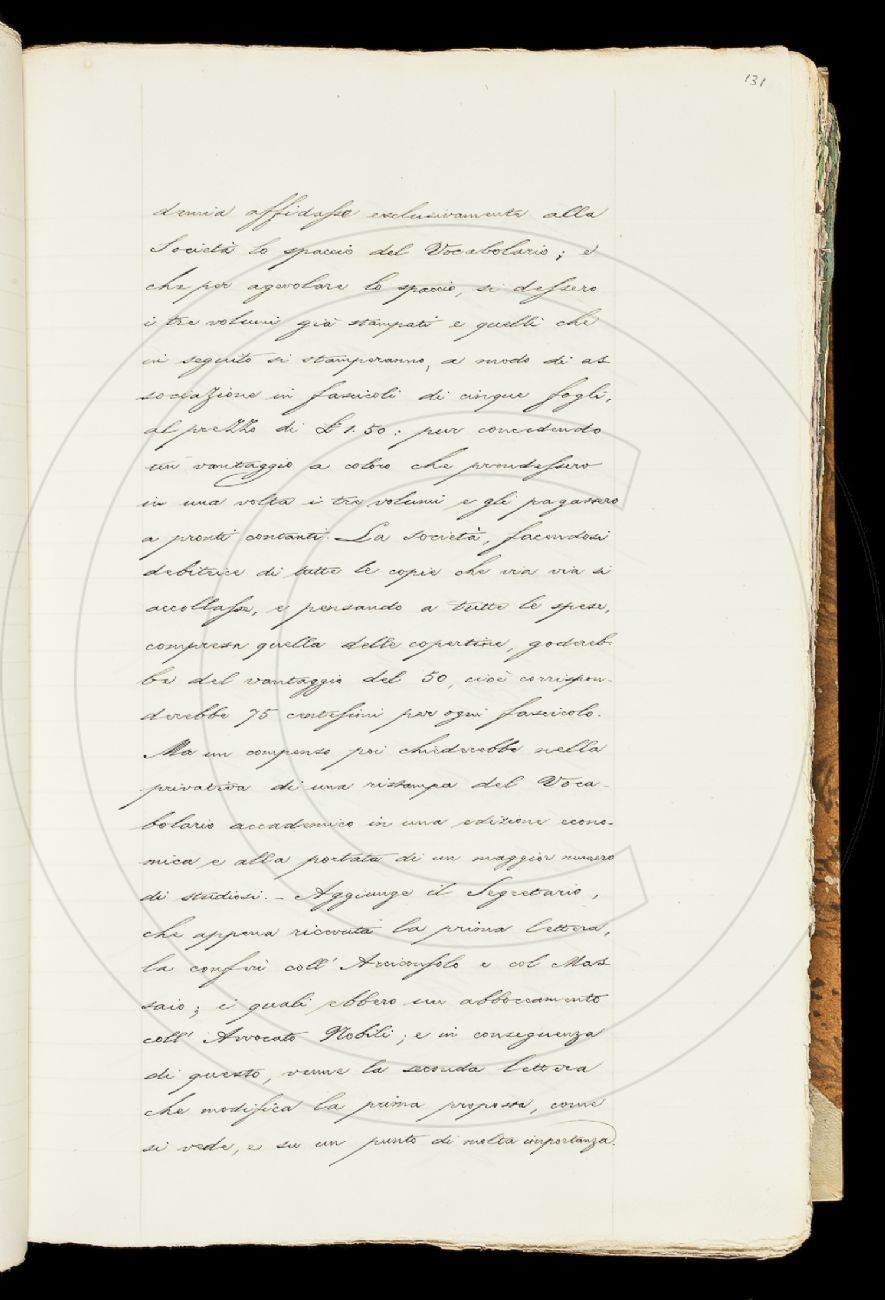 131
demia affidasse esclusivamente alla
Società lo spaccio del Vocabolario; e
che per agevolare lo spaccio, si dessero
i tre volumi già stampati e quelli che
in seguito si stamperanno, a modo di as-
sociazione in fascicoli di cinque fogli,
al prezzo di £ 1. 50: pur concedendo
un vantaggio a coloro che prendessero
in una volta i tre volumi e gli pagassero
a pronti contanti. La Società, facendosi
debitrice di tutte le copie che via via si
accollasse, e pensando a tutte le spese,
compresa quella delle copertine, godereb-
be del vantaggio del 50, cioè corrispon-
derebbe 75 centesimi per ogni fascicolo.
Ma un compenso poi chiederebbe nella
privativa di una ristampa del Voca-
bolario accademico in una edizione econo-
mica e alla portata di un maggior numero
di studiosi. – Aggiunge il Segretario,
che appena ricevuta la prima lettera,
la conferì coll' Arciconsolo e col Mas-
saio; i quali ebbero un abboccamento
coll' Avvocato Nobili; e in conseguenza
di questo, venne la seconda lettera
che modifica la prima proposta, come
si vede, e su un punto di molta importanza.